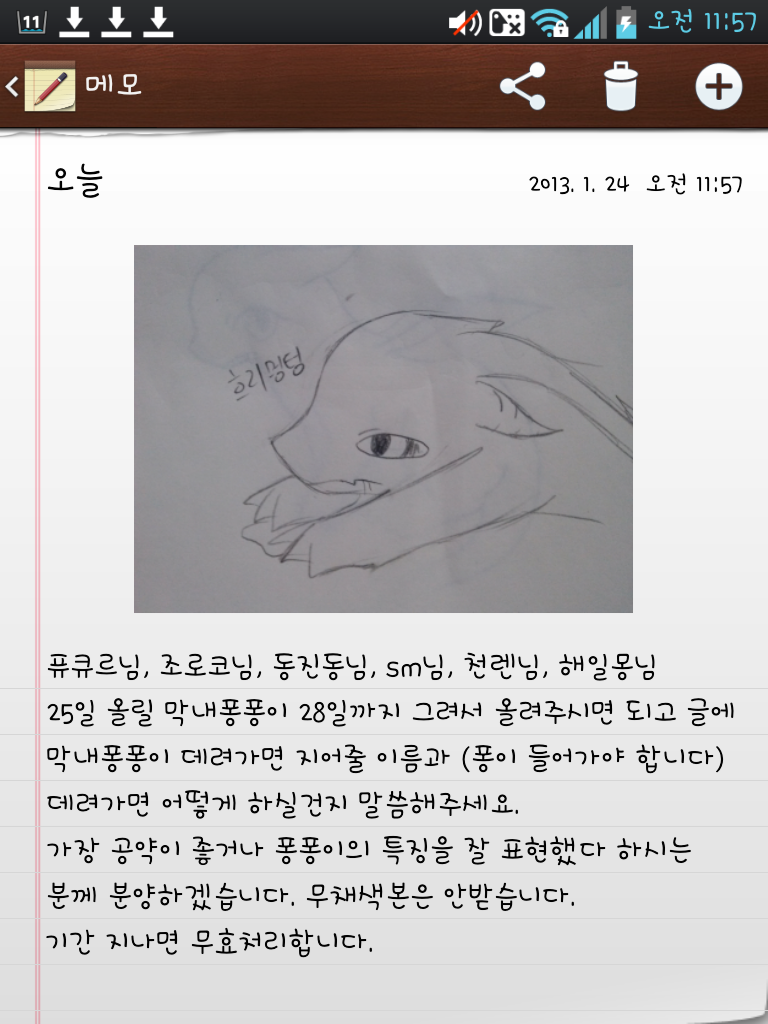 11 오전 11:57
메모
오늘 2013. 1. 24 오전 11:57
흐리밍텅
퓨큐르님, 조로코님, 동진동님, sm님, 천렌님, 해일몽님
25일 올릴 막내퐁퐁이 28일까지 그려서 올려주시면 되고 글에
막내퐁퐁이 데려가면 지어줄 이름과 (퐁이 들어가야 합니다)
데려가면 어떻게 하실건지 말씀해주세요.
가장 공약이 좋거나 퐁퐁이의 특징을 잘 표현했다 하시는
분께 분양하겠습니다. 무채색본은 안받습니다.
기간 지나면 무효처리합니다.